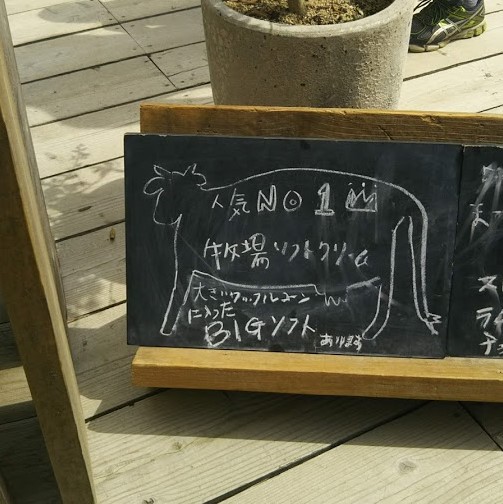 人気NO1
牧場ソフトクリーム
大きいワッフルコーン
に入った
BIGソフト
あります